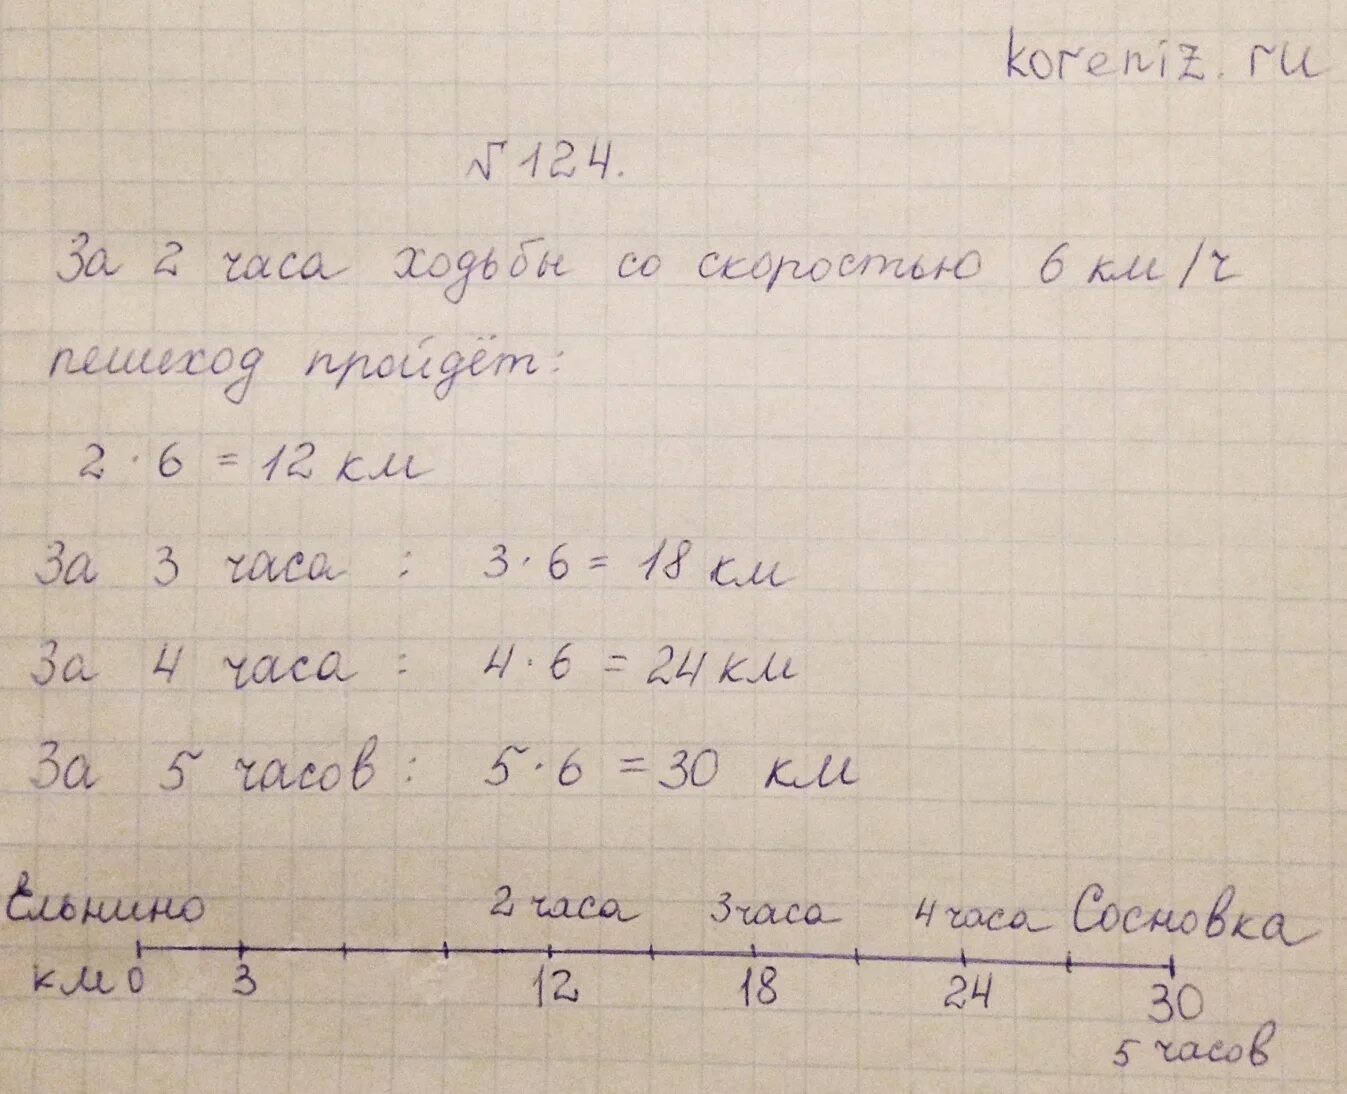 koreniz.ru
№124.
За 2 часа ходьбы со скоростью 6 км/ч
пешеход пройдёт:
2·6 = 12 км
За 3 часа : 3·6 = 18 км
За 4 часа : 4·6 = 24 км
За 5 часов : 5·6 = 30 км
Ельнино 2 часа 3 часа 4 часа Сосновка
км 0 3 12 18 24 30
5 часов